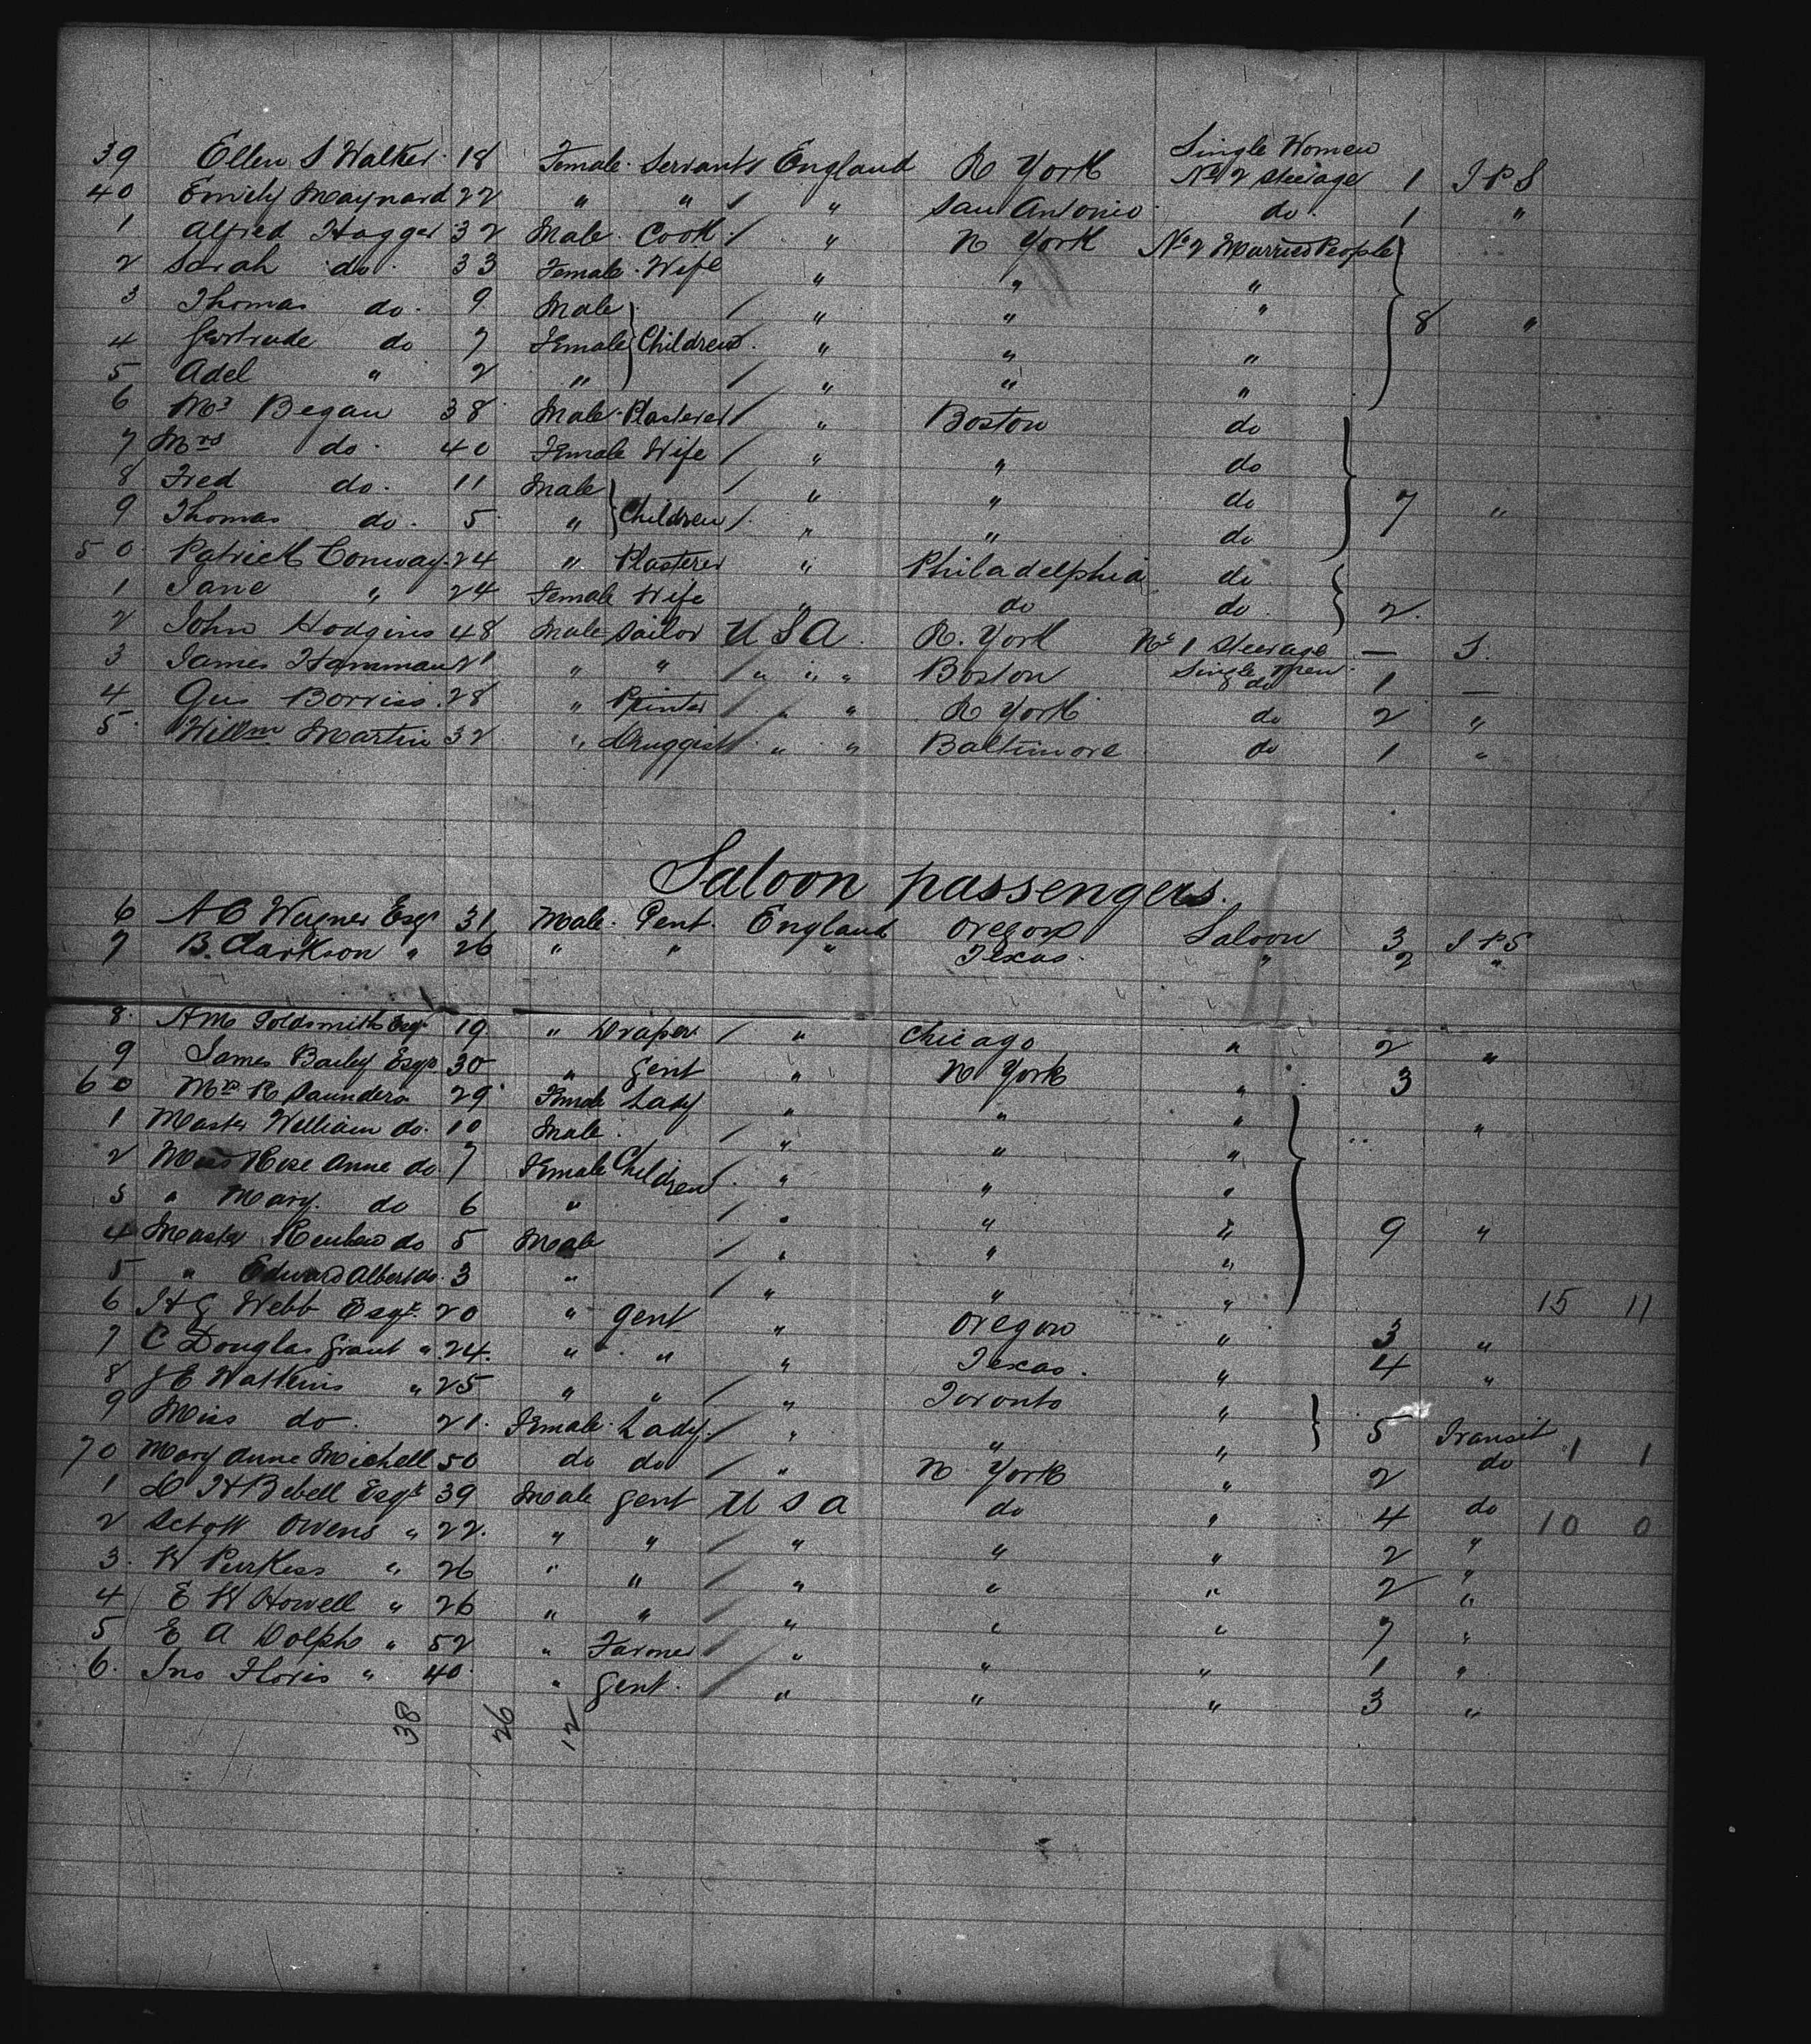 39 Ellen S Walker 18 Female Servant England N York Single Women No 2 Steerage 1 I P S
40 Emily Maynard 22 " " " San Antonio do 1 "
1 Alfred Hagger 32 Male Cook " N York No 2 Married People
2 Sarah do 33 Female Wife " " "
3 Thomas do 9 Male " " " 8 "
4 Gertrude do 7 Female Children " " "
5 Adel " 2 " " " "
6 Mr Began 38 Male Plasterer " Boston do
7 Mrs do 40 Female Wife " " do
8 Fred do 11 Male " " do 7 "
9 Thomas do 5 " Children " " do
50 Patrick Conway 24 " Plasterer " Philadelphia do
1 Jane " 24 Female Wife " do do 2
2 John Hodgins 48 Male Sailor U S A N. York No 1 Steerage — S.
3 James Hamman 21 " " " " " Boston Single Men do 1 —
4 Gus Borriss 28 " Printer " " N York do 2 "
5 Willm Martin 32 " Druggist " " Baltimore do 1 "
Saloon passengers.
6 A C Wagner Esqr 31 Male Gent England Oregon Saloon 3 I P S
7 B. Clarkson " 26 " " " Texas " 2 "
8 A M Goldsmith Esqr 19 " Draper " Chicago " 2 "
9 James Bailey Esqr 30 " Gent " N York " 3
60 Mrs R Saunders 29 Female Lady " " " "
1 Master William do 10 Male " " "
2 Miss Rose Anne do 7 Female Children " " "
3 " Mary do 6 " " " " 9 "
4 Master Reuben do 5 Male " " "
5 " Edward Albert do 3 " " " "
6 H G Webb Esqr 20 " Gent " Oregon " 3 " 15 11
7 C Douglas Grant " 24 " " " Texas " 4 "
8 J E Watkins " 25 " " " Toronto "
9 Miss do 21 Female Lady " " " 5 Transit
70 Mary Anne Michell 50 do do " N York " 2 do 1 1
1 D H Bebell Esqr 39 Male Gent U S A do " 4 do
2 Scton Owens " 22 " " " " " 2 " 10 0
3 W Purkess " 26 " " " " " 2 "
4 E W Howell " 26 " " " " " 7 "
5 E A Dolph " 52 " Farmer " " " 1 "
6 Jno Floris " 40 " Gent " " " 3 "
38 26 12